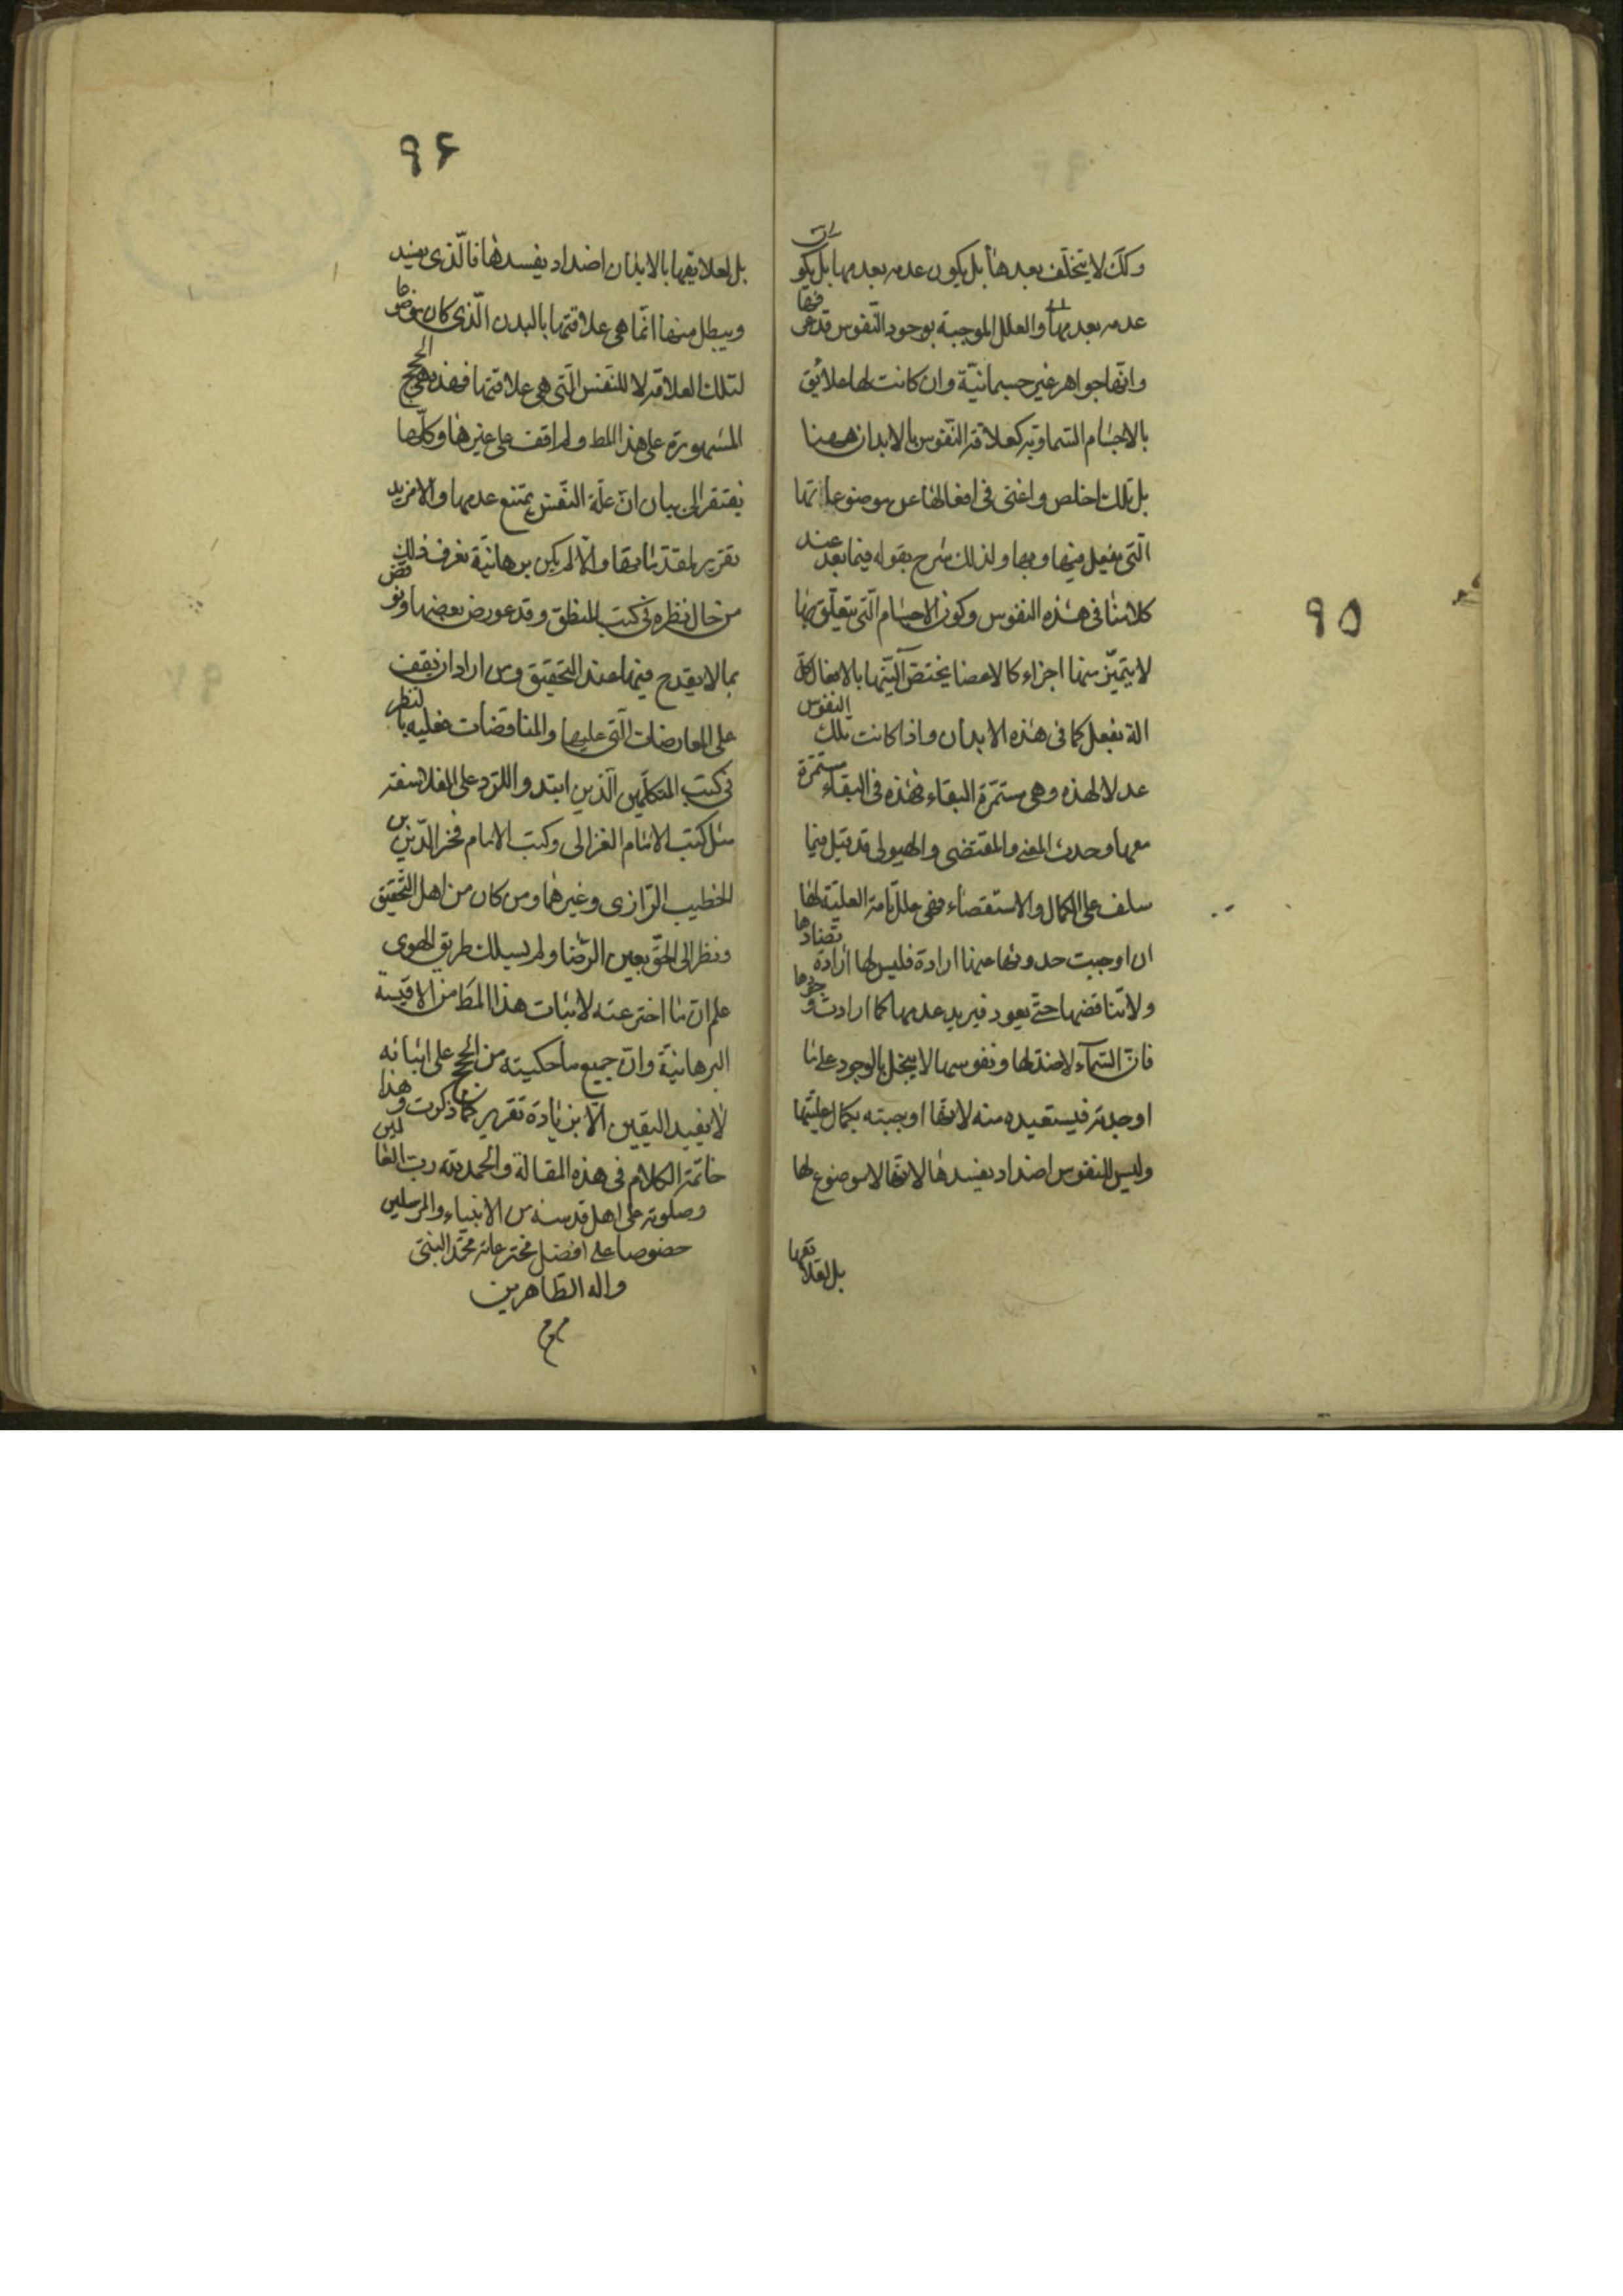 ٩٥
وكك لا يتخلف بعدها بل يكون عدمه بعدمها بل يكو
عدمه بعدمها والعلل الموجبة بوجود النفوس قد عرفتها
وانّها جواهر غير جسمانيّة وان كانت لها علائق
بالاجسام السّماوية كعلاقة النّفوس بالابدان ههنا
بل تلك اخلص واغنى فى افعالها عن موضوعاتها
الّتى يفعل فيها وبها ولذلك شرح بقوله فيما بعد عند
كلامنا فى هذه النفوس وكون الاجسام الّتى يتعلّق بها
لا يتميّز منها اجزاء كالاعضا يختصّ آليّتها بالافعال
الة يفعل كما فى هذه الابدان واذا كانت تلك النفوس
عللا لهذه وهى مستمرّة البقاء فهذه فى البقاء مستمرّة
معها وحدث المعنى والمقتضى والهيولى قد قيل فيما
سلف على الكمال والاستقصاء فهى علل تامة العليّة لها
ان اوجبت حدوثها عنها ارادة فليس لها ارادة تضادها
ولا تناقضها حتّى يعود فيريد عدمها كما ارادت وجودها
فانّ السّمآء لا ضدّ لها ونفوسها لا يبخل بالوجود على ما
اوجدته فيستعيده منه لانّها اوجبته بكمال عليّتها
وليس للنفوس اضداد يفسدها لانّها لا موضوع لها
بل لعلاقتها
٩٦
بل لعلايقها بالابدان اضداد يفسدها فالّذى يفسد
ويبطل منها انّما هى علاقتها بالبدن الّذى كان موضوعا
لتلك العلاقة لا للنّفس الّتى هى علاقتها فهذه هى الحجج
المشهورة على هذا المط ولم اقف على غيرها وكلّها
يفتقر الى بيان انّ علّة النّفس يمتنع عدمها والا مزيد
تقرير لمقدّماتها والّا لم يكن برهانيّة يعرف ذلك
من خال نظره فى كتب المنطق وقد عورض بعضها ونوقض
بما لا يقدح فيها عند التحقيق ومن اراد ان يقف
على المعارضات الّتى عليها والمناقضات فعليه بالنظر
فى كتب المتكلّمين الّذين ابتدوا للرّد على الفلاسفة
مثل كتب الامام الغزالى وكتب الامام فخر الدّين بن
الخطيب الرّازى وغيرهما ومن كان من اهل التّحقيق
ونظر الى الحقّ بعين الرّضا ولم يسلك طريق الهوى
علم ان ما اخترعته لاثبات هذا المط من الاقيسة
البرهانيّة وانّ جميع ما حكيته من الحجج على اثباته
لا يفيد اليقين الّا بزيادة تقرير كما ذكرت وهذا
خاتمة الكلام فى هذه المقالة والحمد لله ربّ العالمين
وصلوته على اهل قدسه من الانبياء والمرسلين
خصوصا على افضل مخترعاته محمّد النبىّ
واله الطّاهرين